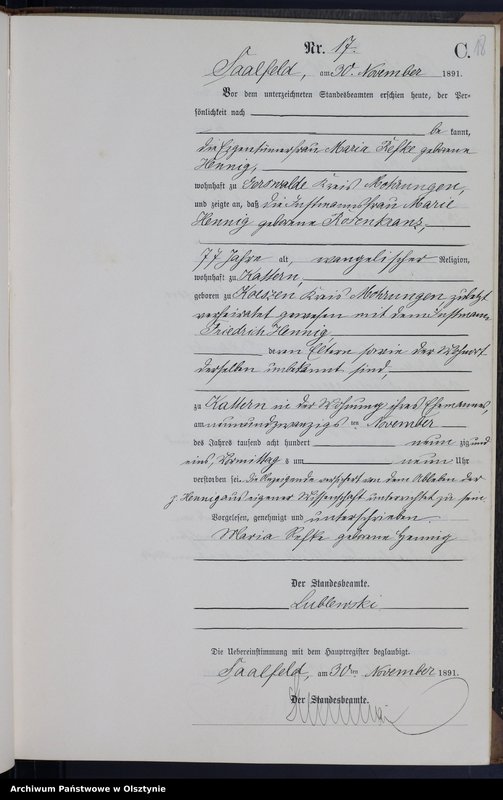 Nr. 17.
C.
18
Saalfeld, am 30. November 1891.
Vor dem unterzeichneten Standesbeamten erschien heute, der Per-
sönlichkeit nach
be kannt,
die Eigenthümerfrau Maria Refke geborene
Hennig,
wohnhaft zu Gerswalde Kreis Mohrungen,
und zeigte an, daß die Instmannsfrau Marie
Hennig geborene Rosenkranz,
77 Jahre alt, evangelischer Religion,
wohnhaft zu Kattern,
geboren zu Kreis Mohrungen zuletzt
verheiratet gewesen mit dem Instmann
Friedrich Hennig
deren Eltern sowie der Wohnort
derselben unbekannt sind,
zu Kattern in der Wohnung ihres Ehemannes,
am neunundzwanzigsten November
des Jahres tausend acht hundert neun zig und
eins, Vormittag s um neun Uhr
verstorben sei. Die Anzeigende versichert von dem Ableben der
p. Hennig aus eigener Wissenschaft unterrichtet zu sein
Vorgelesen, genehmigt und unterschrieben
Maria Refke geborene Hennig
Der Standesbeamte.
Lublewski
Die Uebereinstimmung mit dem Hauptregister beglaubigt.
Saalfeld, am 30ten November 1891.
Der Standesbeamte.
Archiwum Państwowe w Olsztynie